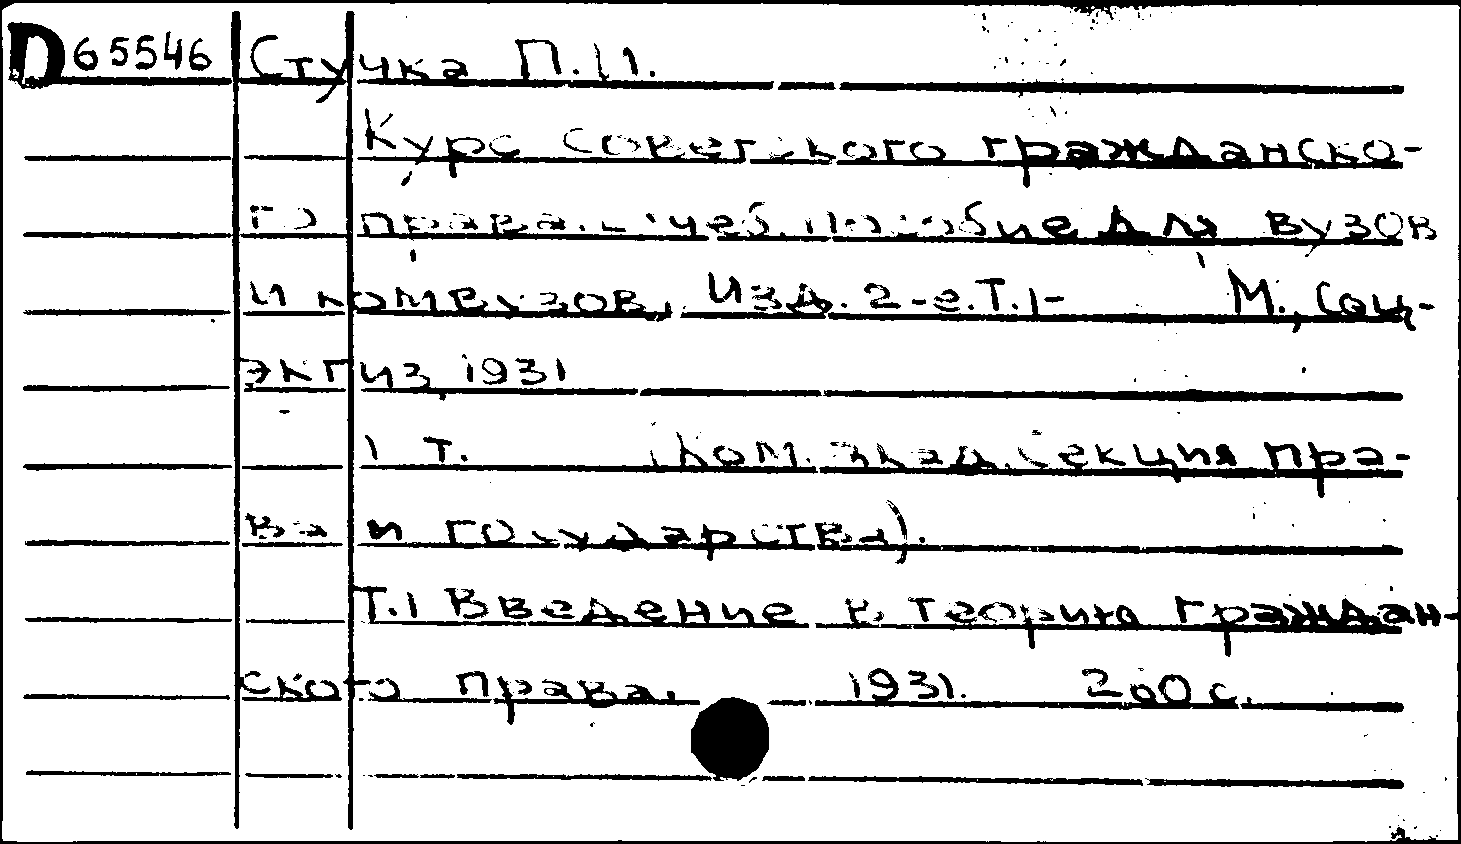 D65546 Стучка П.И.
Курс советского гражданско-
го права. Учеб. пособие для вузов
и комвузов. Изд. 2-е. Т.1- М., Соц-
экгиз, 1931
1 т. (Ком. акад. Секция пра-
ва и государства).
Т.1 Введение в теорию граждан-
ского права. 1931. 200 с.